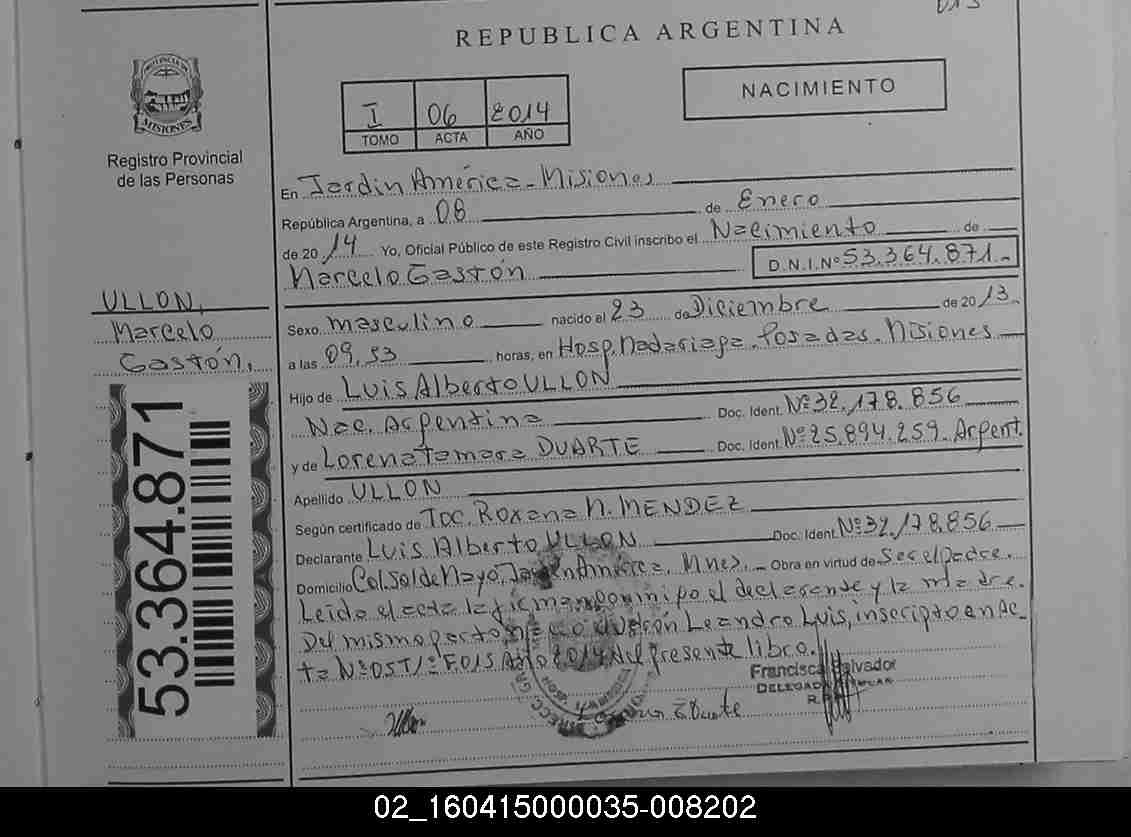 REPUBLICA ARGENTINA
PROVINCIA DE
MISIONES
Registro Provincial
de las Personas
I 06 2014
TOMO ACTA AÑO
NACIMIENTO
En Jardín América - Misiones
República Argentina, a 08 de Enero
de 2014 Yo, Oficial Público de este Registro Civil inscribo el Nacimiento de
Marcelo Gastón D.N.I.Nº 53.364.871.-
ULLON,
Marcelo
Gastón,
53.364.871
Sexo masculino nacido el 23 de Diciembre de 2013.
a las 09,53 horas, en Hosp. Madariaga. Posadas. Misiones
Hijo de Luis Alberto ULLON
Nac. Argentina Doc. Ident. Nº 32.178.856
y de Lorena Tamara DUARTE Doc. Ident. Nº 25.894.259. Argent.
Apellido ULLON
Según certificado de Toc. Roxana M. MENDEZ
Declarante Luis Alberto ULLON Doc. Ident. Nº 32.178.856
Domicilio Col. Sol de Mayo, Jardín América. Mnes. - Obra en virtud de Ser el Padre.
Leída el acta la firman conmigo el declarante y la madre.
Del mismo parto nació Leandro Luis, inscripto en Ac-
ta Nº 05 Tº I Fº 015 Año 2014 del presente libro.
Francisca Salvador
DELEGADA
Ullon
Duarte
02_160415000035-008202